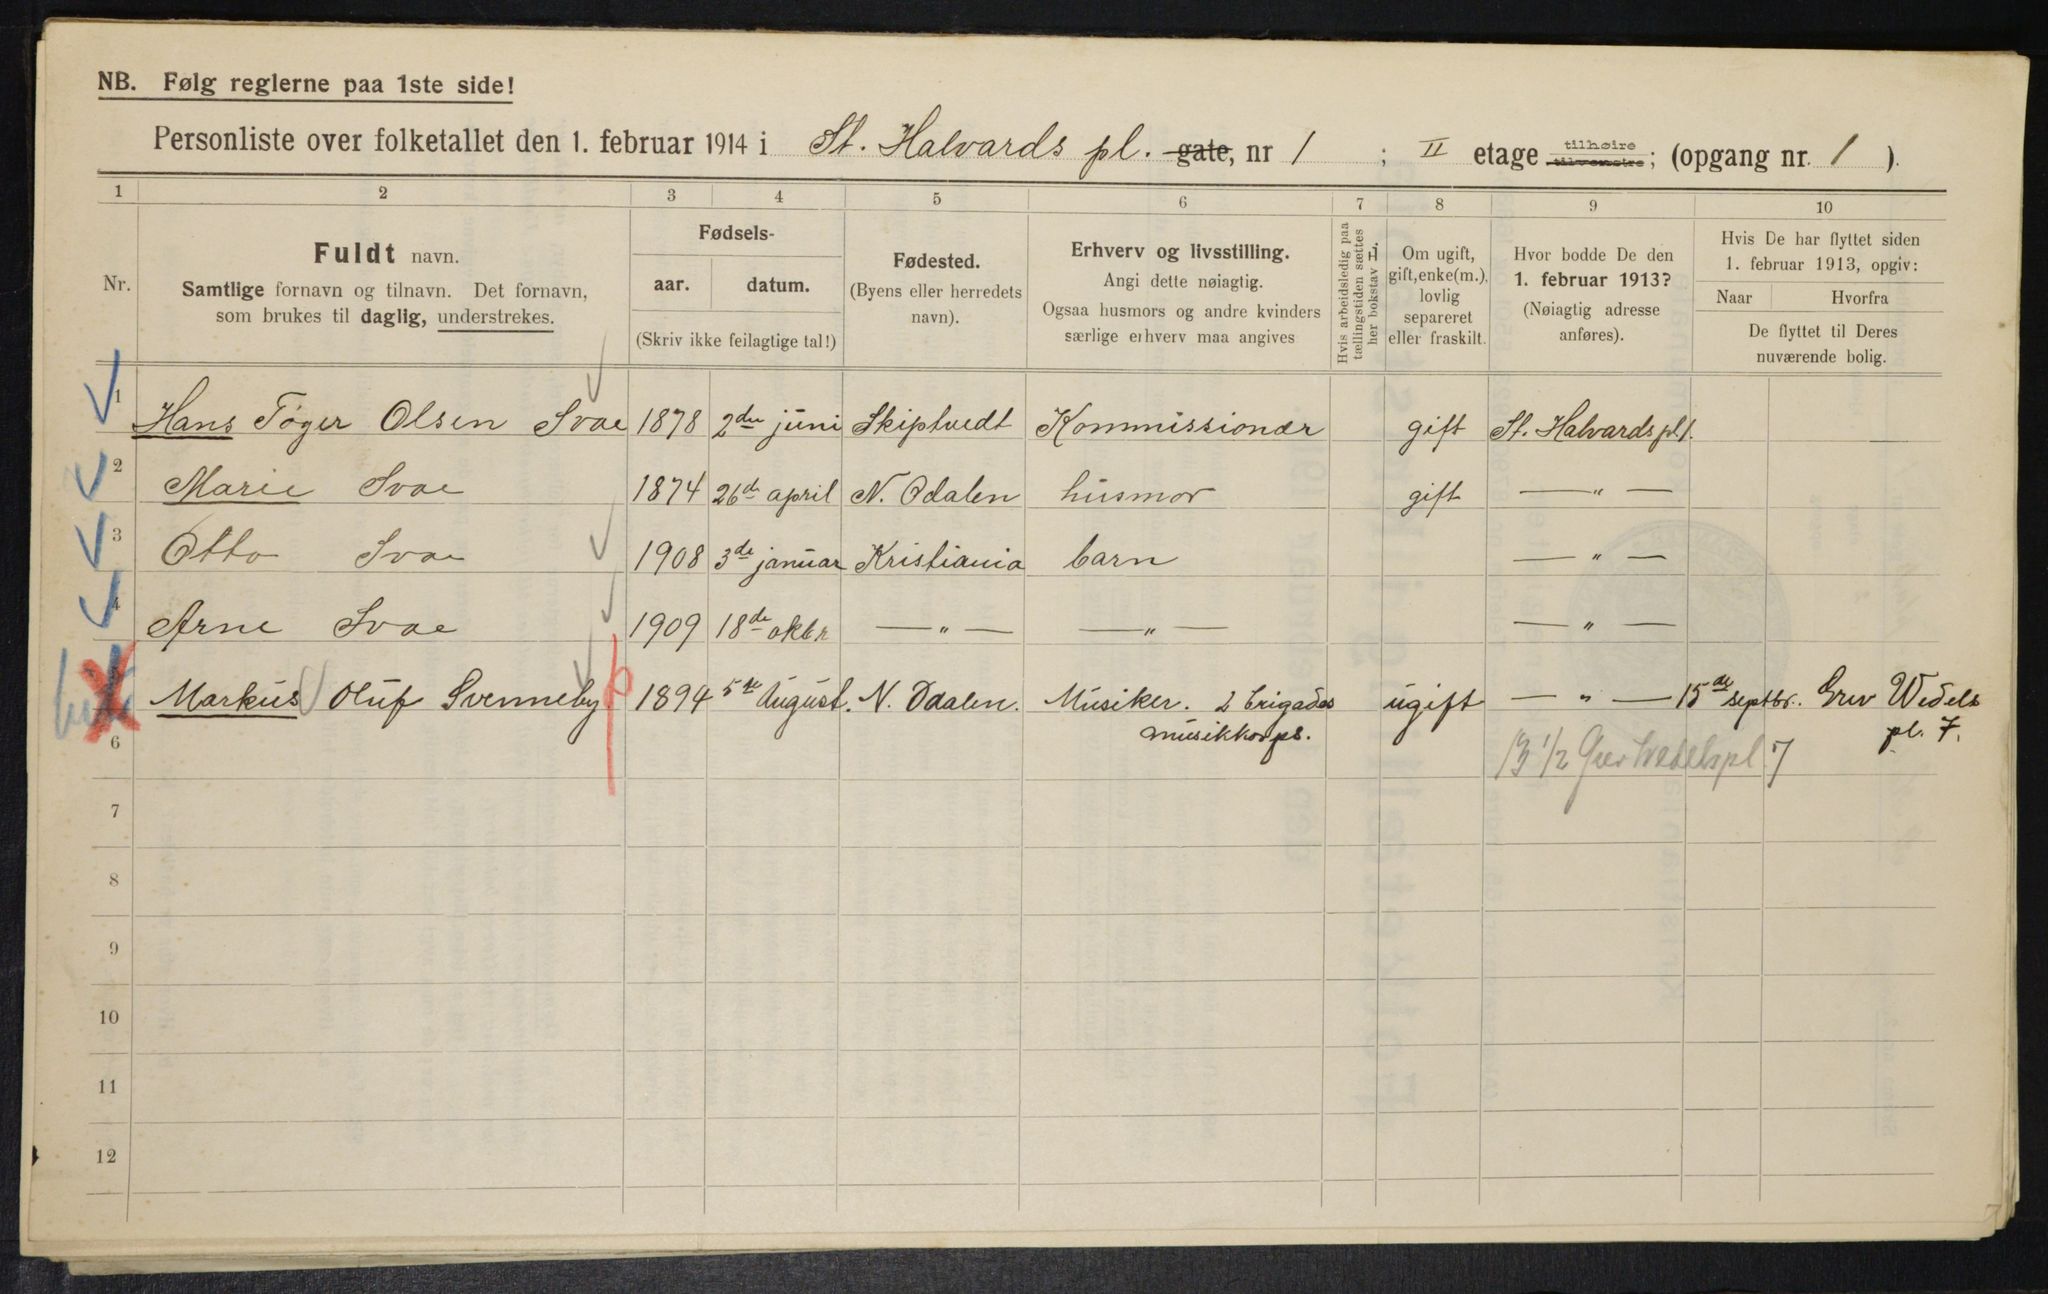 NB. Følg reglerne paa 1ste side!
Personliste over folketallet den 1. februar 1914 i St. Halvards pl. gate, nr 1 ; II etage tilhøire tilvenstre; (opgang nr. 1 ).
1 2 3 4 5 6 7 8 9 10
Nr.
Fuldt navn.
Samtlige fornavn og tilnavn. Det fornavn,
som brukes til daglig, understrekes.
Fødsels-
aar. datum.
(Skriv ikke feilagtige tal!)
Fødested.
(Byens eller herredets
navn).
Erhverv og livsstilling.
Angi dette nøiagtig.
Ogsaa husmors og andre kvinders
særlige erhverv maa angives
Hvis arbeidsledig paa
tællingstiden sættes
her bokstav L.
Om ugift,
gift, enke(m.),
lovlig
separeret
eller fraskilt.
Hvor bodde De den
1. februar 1913?
(Nøiagtig adresse
anføres).
Hvis De har flyttet siden
1. februar 1913, opgiv:
Naar Hvorfra
De flyttet til Deres
nuværende bolig.
1 Hans Tøger Olsen Svae 1878 2den juni Skiptvedt Kommissionær gift St. Halvards pl 1.
2 Marie Svae 1874 26de april N. Odalen husmor gift — " —
3 Otto Svae 1908 3de januar Kristiania barn — " —
4 Arne Svae 1909 18de oktbr — " — — " — — " —
Markus Oluf Svenneby 1894 5te August. N. Odalen. Musiker. 2 brigades ugift — " — 15de septbr. Grev Wedels
musikkorps. pl. 7.
6 13 1/2 Grev Wedelspl 7
7
8
9
10
11
12